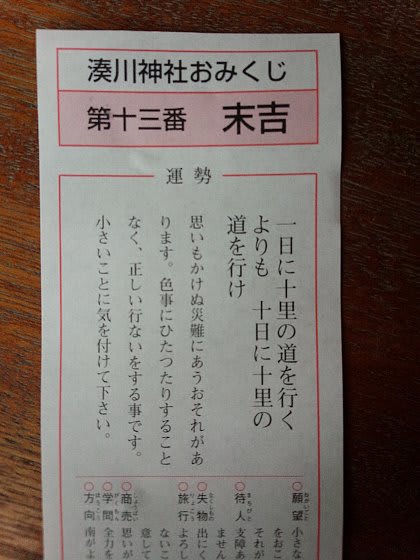 湊川神社おみくじ
第十三番 末吉
運勢
一日に十里の道を行く
よりも 十日に十里の
道を行け
思いもかけぬ災難にあうおそれがあ
ります。色事にひたつたりすること
なく、正しい行ないをする事です。
小さいことに気を付けて下さい。
○願望 小さな
をおこ
それが
○待人 支障あ
ません
○失物 出にく
○旅行 よろし
ないこ
意して
○商売 思いが
○学問 全力を
○方向 南がよ